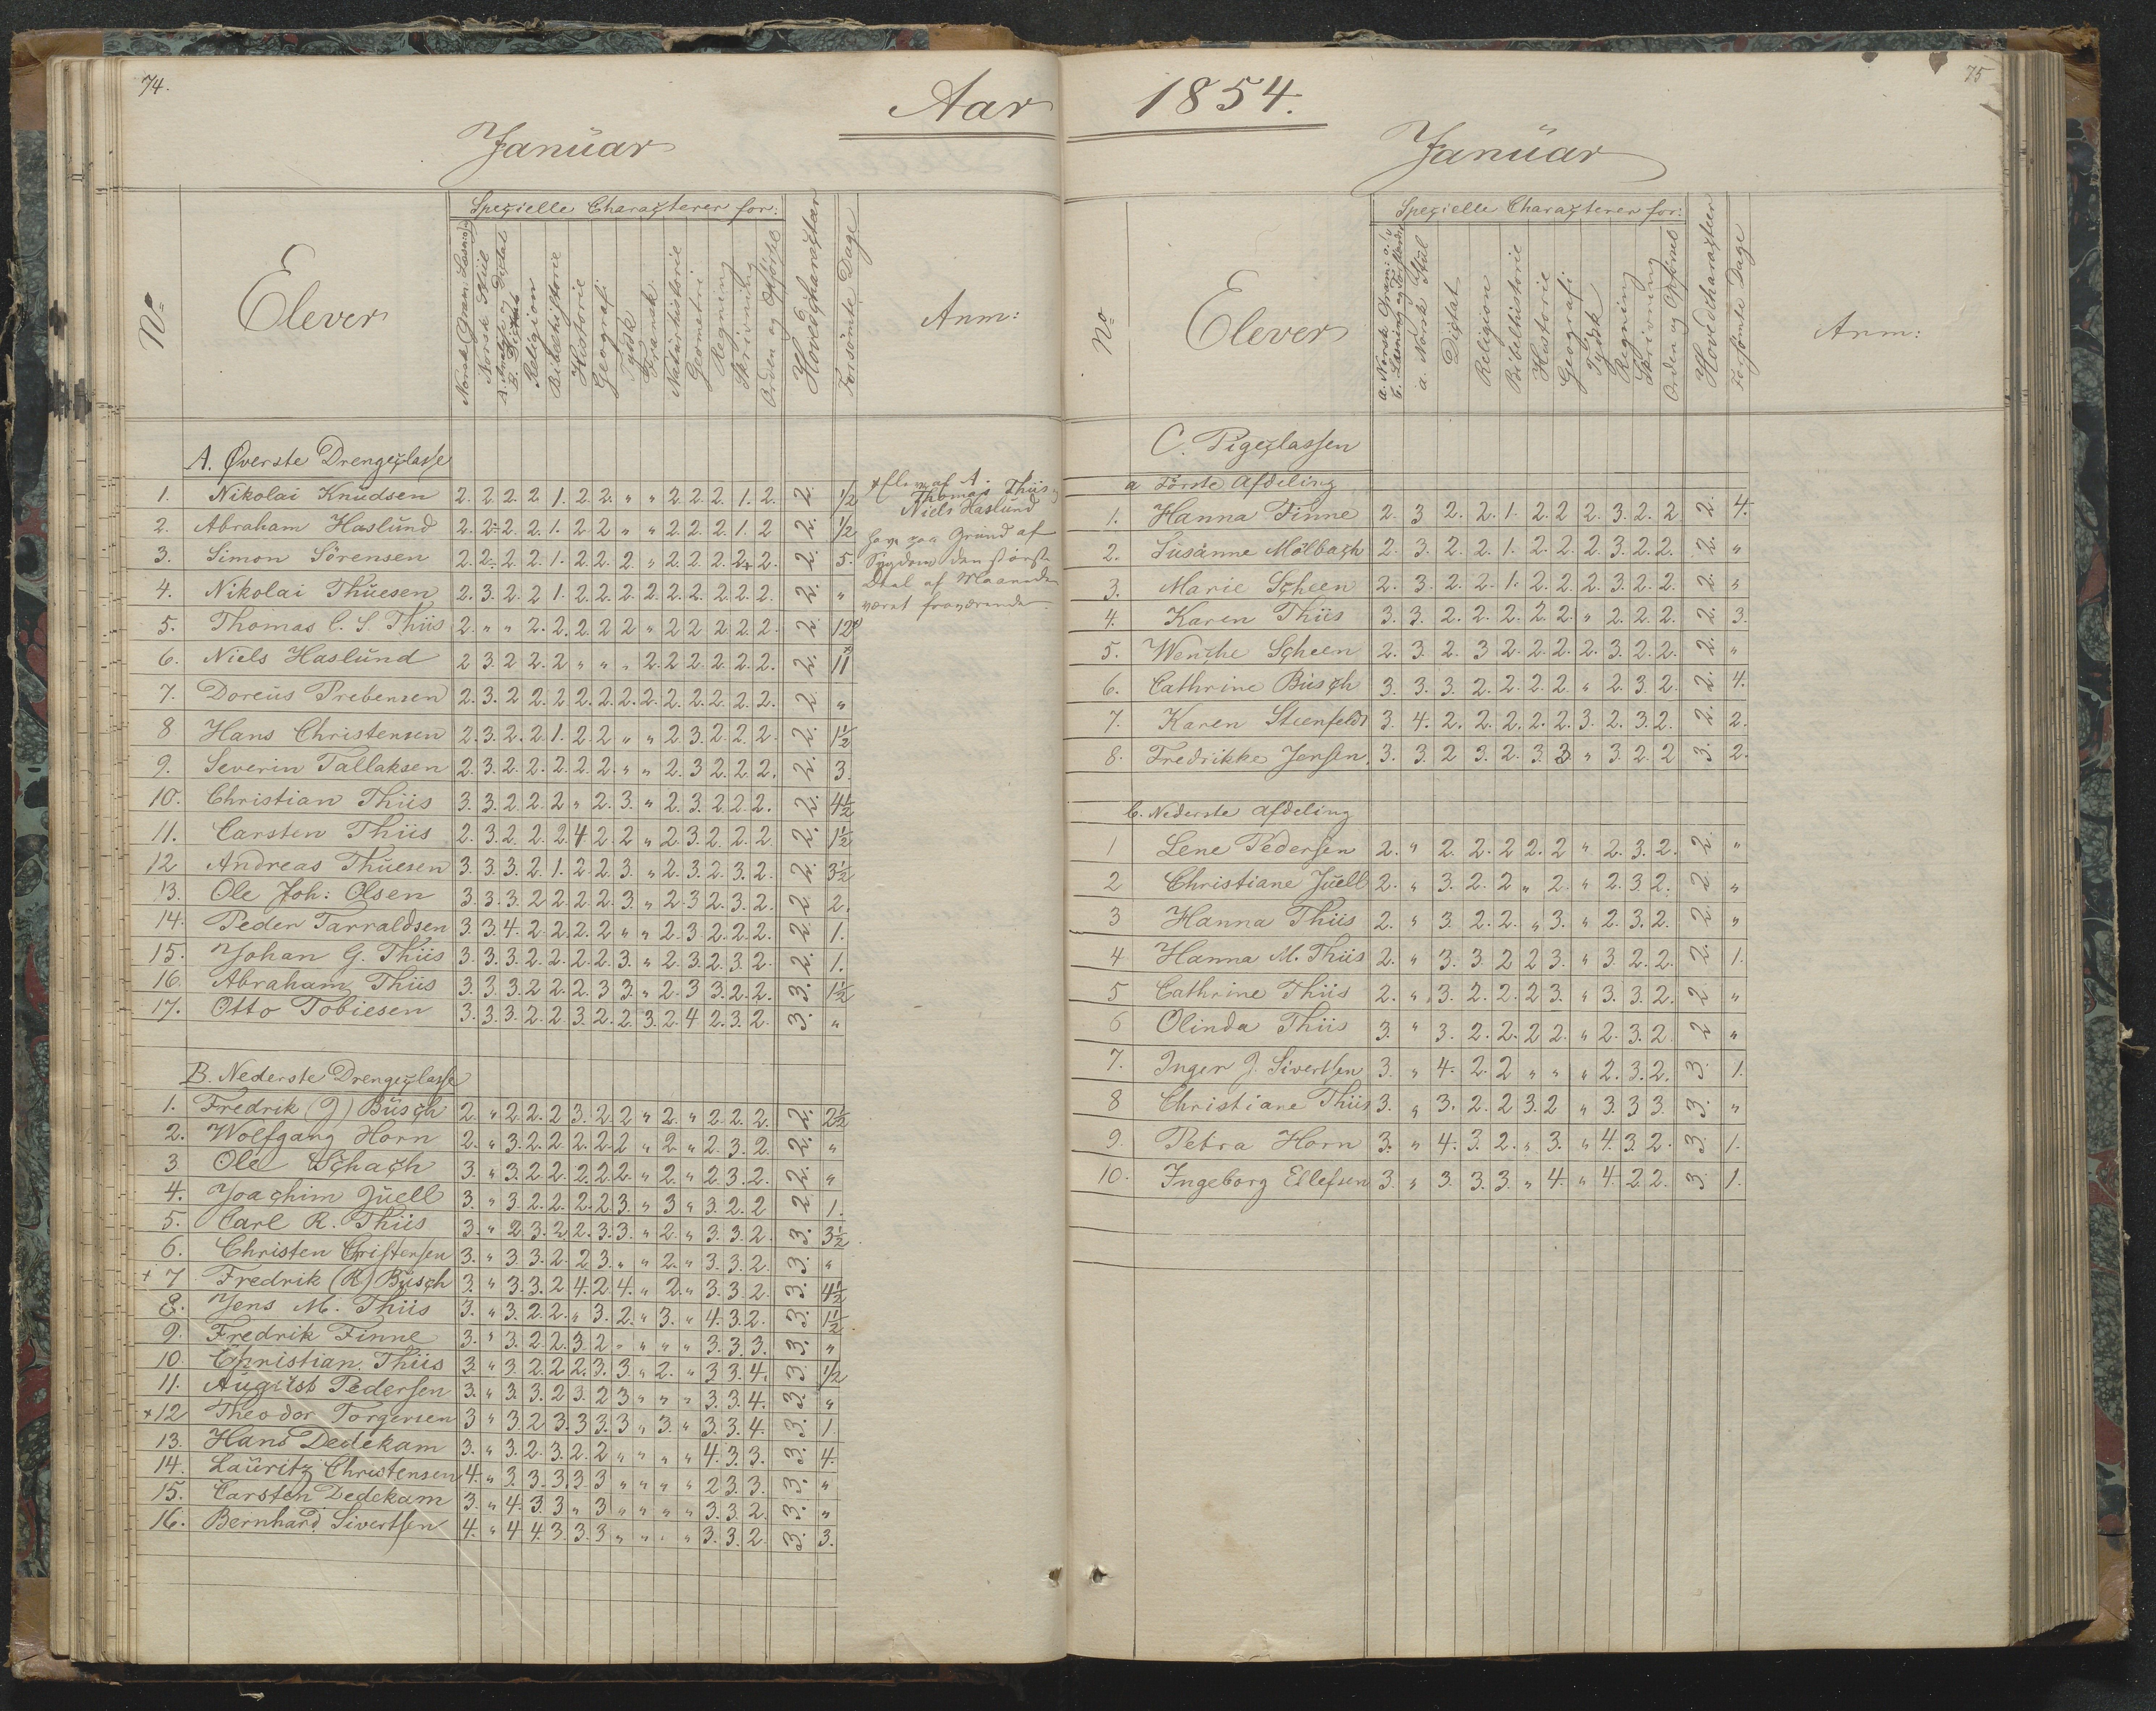 74.
Aar
Januar
Spezielle Charaqterer for:
No
Elever
Norsk Gram. Læsn.
Norsk Stiil
A. Analyse og Diqtat
B. Diqtat
Religion
Bibelhistorie
Historie
Geografi
Tydsk
Fransk.
Naturhistorie
Geometri
Regning
Skrivning
Orden og Opførsel
Hovedcharaqtær
Forsömte Dage
Anm:
A. Øverste Drengeqlasse
1. Nikolai Knudsen 2. 2. 2. 2 1. 2 2. " " 2. 2. 2. 1. 2. 2. 1/2
2. Abraham Haslund 2. 2÷ 2. 2. 1. 2 2 " " 2. 2. 2. 1. 2 2. 1/2
3. Simon Sörensen 2. 2÷ 2. 2. 1. 2. 2. 2. " 2. 2. 2. 2+ 2. 2. 5.
4. Nikolai Thuesen 2. 3. 2. 2 1. 2. 2. 2. 2. 2. 2. 2. 2. 2. 2. "
5. Thomas C. S. Thiis 2. " " 2. 2. 2. 2 2 " 2 2 2. 2. 2. 2. 12x
6. Niels Haslund 2 3. 2 2. 2 " " " 2. 2. 2. 2. 2. 2. 2. 11x
7. Doreus Prebensen 2. 3. 2 2. 2. 2. 2. 2. 2. 2. 2. 2. 2. 2. 2. "
8 Hans Christensen 2. 3. 2. 2. 1. 2 2 " " 2 3. 2. 2. 2. 2. 1 1/2
9. Severin Tallaksen 2. 3. 2. 2. 2. 2. 2. " " 2. 3 2. 2. 2. 2. 3.
10. Christian Thiis 3. 3. 2. 2. 2 " 2. 3. " 2. 3. 2. 2. 2. 2. 4 1/2
11. Carsten Thiis 2. 3. 2 2. 2. 4 2. 2 " 2. 3. 2. 2. 2. 2. 1 1/2
12 Andreas Thuesen 3. 3. 3. 2. 1. 2. 2 3. " 2. 3. 2. 3. 2. 2. 3 1/2
13. Ole Joh: Olsen 3. 3. 3. 2 2. 2. 2. 3. " 2. 3 2. 3. 2. 2 2.
14. Peder Tarraldsen 3. 3 4. 2. 2. 2. 2 " " 2. 3. 2. 2. 2. 2 1.
15. Johan G. Thiis 3. 3. 3. 2. 2. 2. 2. 3. " 2. 3. 2. 3. 2. 2. 1.
16. Abraham Thiis 3. 3. 3. 2 2. 2. 3 3. " 2. 3 3. 2. 2. 3. 1 1/2
17. Otto Tobiesen 3. 3. 3. 2. 2. 3. 2. 2. 3. 2. 4 2. 3. 2. 3. "
x Elev af A.
Thomas Thiis og
Niels Haslund
have paa Grund af
Sygdom den største
Deel af Maaneden
været fraværende.
B. Nederste Drengeqlasse
1. Fredrik (J) Busqh 2. " 2. 2. 2 3. 2. 2 " 2. " 2. 2. 2. 2. 2 1/2
2. Wolfgang Horn 2. " 3. 2. 2. 2. 2. 2 " 2. " 2. 3. 2. 2. "
3 Ole Schach 3. " 3. 2. 2. 2. 2. 2. " 2. " 2. 3. 2. 2. "
4. Joachim Juell 3. " 3. 2. 2. 2. 2. 3. " 3 " 3. 2. 2 2 1.
5. Carl R. Thiis 3. " 2 3. 2. 2. 3. 3. " 2. " 3. 3. 2. 3. 3 1/2
6. Christen Christensen 3. " 3. 3. 2. 2. 3. " " 2. " 3. 3. 2. 3. "
+ 7 Fredrik (R) Busch 3. " 3. 3. 2 4. 2. 4. " 2. " 3. 3. 2. 3. 4 1/2
8. Jens M. Thiis 3. " 3. 2. 2. " 3. 2. " 3. " 4. 3. 2. 3. 1 1/2
9. Fredrik Finne 3. " 3. 2. 2. 3. 2 " " " " 3. 3. 3. 3. "
10. Christian Thiis 3. " 3. 2. 2. 2. 3. 3. " 2. " 3 3. 4. 3 1/2
11. August Pedersen 3. " 3. 3. 2. 3. 2 3 " " " 3. 3. 4. 3. "
x 12 Theodor Torgersen 3 " 3. 2 3. 3. 3. 3 " 3. " 3. 3. 4. 3. 1.
13. Hans Dedekam 3. " 3. 2. 3. 2. 2 " " " " 4. 3. 3. 3. 4.
14. Lauritz Christensen 4. " 3. 3. 3. 3. 3 " " " " 2 3. 3. 3. "
15. Carsten Dedekam 3. " 4. 3. 3 " 3 " " " " 3. 3. 2. 3. "
16. Bernhard Sivertsen 4. " 4 4. 3. 3. 3 " " " " 3. 3. 2 3. 3.
75
1854.
Januar
Spezielle Charaqterer for:
No
Elever
a. Norsk Gram: o.
b. Læsning og Forstand
a. Norsk Stiil
Diqtat
Religion
Bibelhistorie
Historie
Geografi
Tydsk
Regning
Skrivning
Orden og Opførsel
Hovedcharaqteer
Forsömte Dage
Anm:
C. Pigeqlassen
a Förste Afdeling
1. Hanna Finne 2. 3 2. 2. 1. 2. 2 2. 3. 2. 2 2. 4.
2. Susanne Mölbach 2. 3. 2. 2. 1. 2. 2. 2. 3. 2. 2. 2. "
3. Marie Scheen 2. 3. 2. 2. 1. 2. 2. 2. 3. 2. 2. 2. "
4. Karen Thiis 3. 3. 2. 2. 2. 2. 2. " 2. 2. 2. 2. 3.
5. Wenche Scheen 2. 3. 2. 3 2. 2. 2. 2. 3. 2. 2. 2. "
6. Cathrine Busch 3. 3. 3. 2. 2. 2. 2. " 2. 3. 2. 2. 4.
7. Karen Steenfeldt 3. 4. 2. 2. 2. 2. 2. 3. 2. 3. 2. 2. 2.
8. Fredrikke Jensen. 3. 3. 2 3. 2. 3. 3. " 3. 2. 2 3. 2.
b. Nederste Afdeling
1 Lene Pedersen 2. " 2. 2. 2 2. 2 " 2. 3. 2. 2. "
2 Christiane Juell 2. " 3. 2. 2 " 2. " 2. 3 2. 2. "
3 Hanna Thiis 2. " 3. 2. 2. " 3. " 2. 3. 2. 2. "
4 Hanna M. Thiis 2. " 3. 3. 2 2 3. " 3. 2. 2. 2. 1.
5 Cathrine Thiis 2. " 3. 2. 2. 2 3. " 3. 3. 2. 2 "
6 Olinda Thiis 3. " 3. 2. 2. 2 2. " 2. 3. 2. 2 "
7. Inger J. Sivertsen 3. " 4. 2. 2 " " " 2. 3. 2. 3. 1.
8 Christiane Thiis 3. " 3. 2. 2 3. 2 " 3. 3 3. 3. "
9. Petra Horn 3. " 4. 3. 2. " 3. " 4. 3. 2. 3. 1.
10. Ingeborg Ellefsen 3. " 3. 3. 3. " 4. " 4. 2 2. 3. 1.